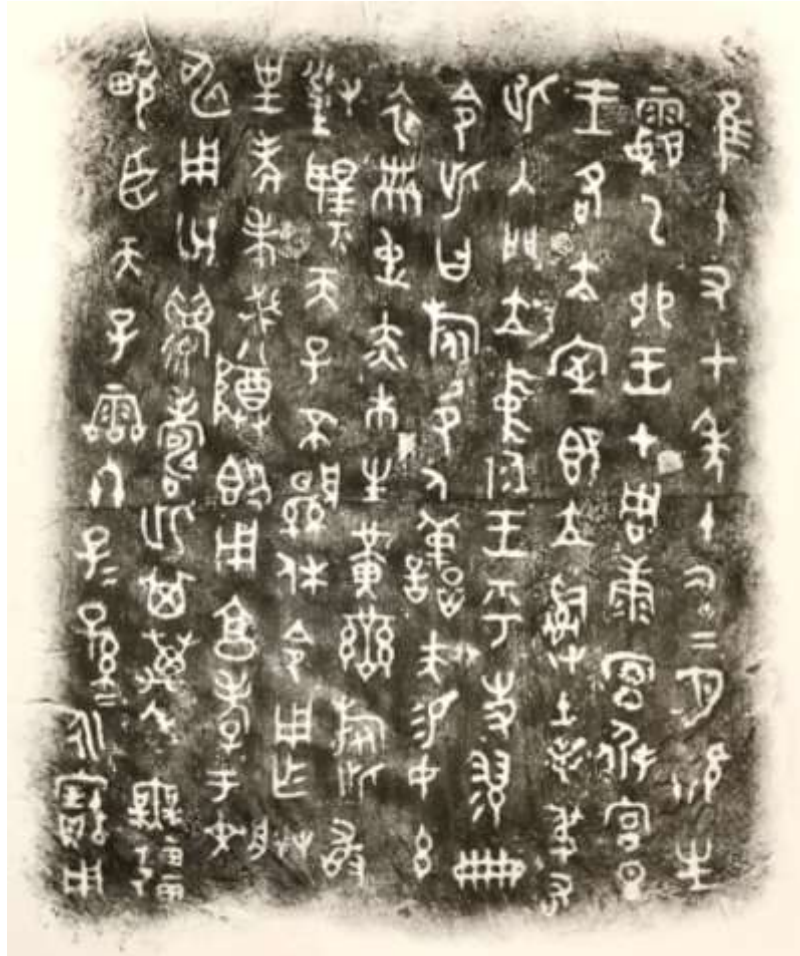 隹十又七年十又二月既生
霸乙卯王才周康宮徲宮旦
王各大室即立𤔲土毛弔右
此入門立中廷王乎史翏冊
令此曰旅邑人善夫易女玄
衣黹屯赤巿朱黃䜌旅此敢
對揚天子不顯休令用乍朕
皇考朱癸尊簋用享孝于文
申用匄眉壽此其萬年無疆
畯臣天子霝冬子=孫=永寶用